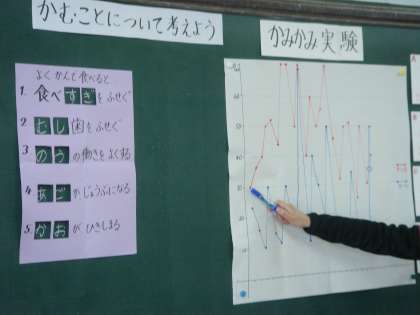 かむことについて考えよう
かみかみ実験
よくかんで食べると
1. 食べすぎをふせぐ
2 むし歯をふせぐ
3 のうの働きをよくする
4 あごがじょうぶになる
5 かおがひきしまる